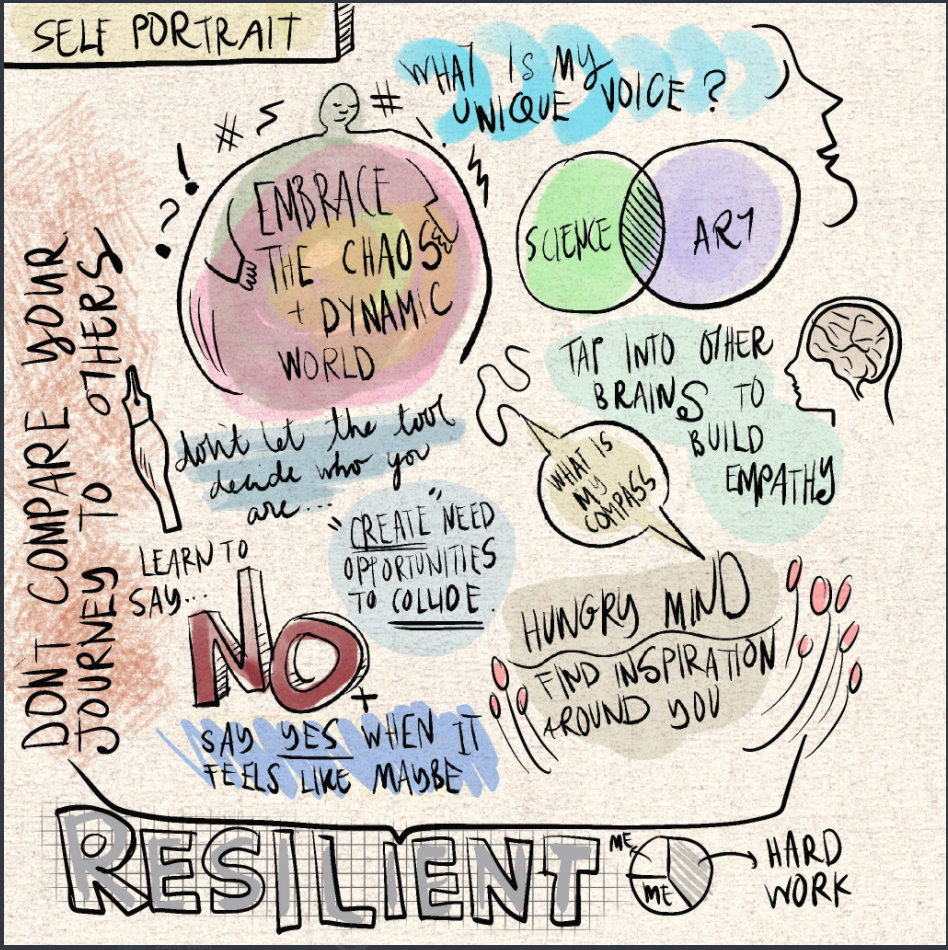 SELF PORTRAIT
WHAT IS MY
UNIQUE VOICE?
#
#
!
?
EMBRACE
THE CHAOS
+ DYNAMIC
WORLD
SCIENCE
ART
TAP INTO OTHER
BRAINS TO
BUILD
EMPATHY
DON'T COMPARE YOUR
JOURNEY TO OTHERS
don't let the tool
decide who you
are...
WHAT IS
MY
COMPASS
"CREATE" NEED
OPPORTUNITIES
TO COLLIDE.
LEARN TO
SAY...
NO
+
SAY YES WHEN IT
FEELS LIKE MAYBE
HUNGRY MIND
FIND INSPIRATION
AROUND YOU
RESILIENT
ME
ME
HARD
WORK